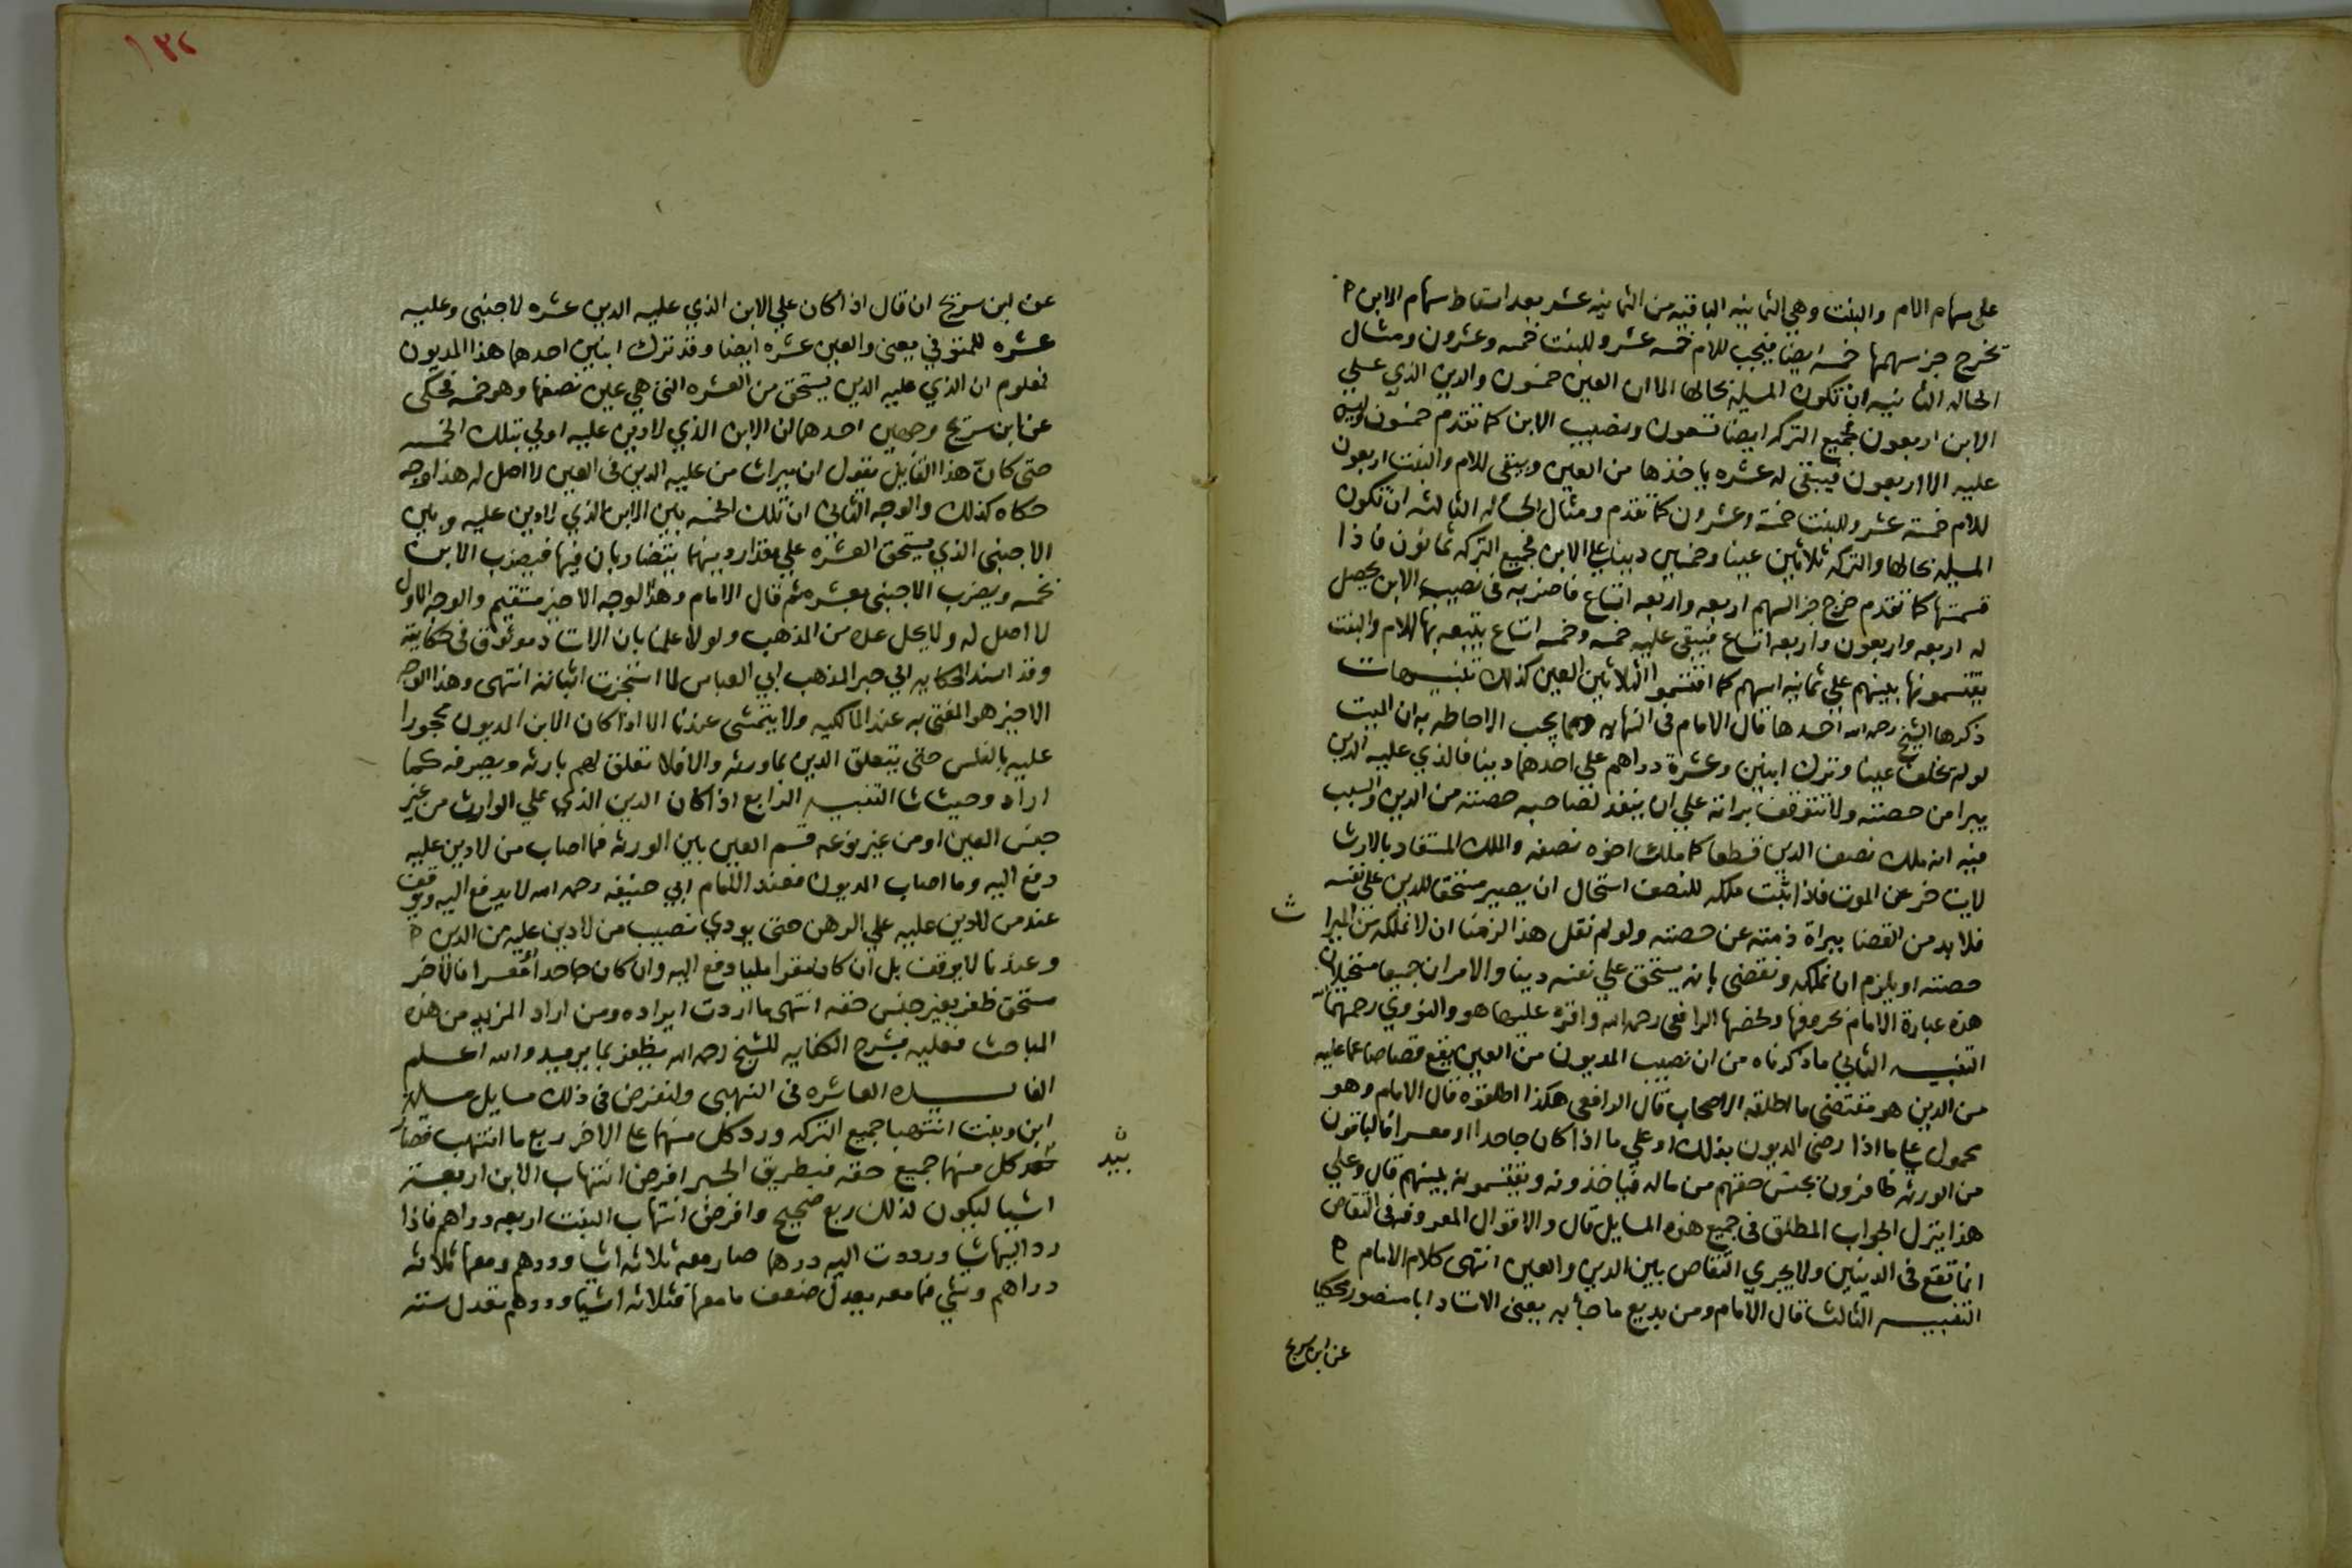 على سهام الام والبنت وهي الثمانيه الباقيه من الثمانيه عشر بعد اسقاط سهام الابن
تخرج جز سهمها خمسه ايضا فيجب للام خمسه عشر وللبنت خمسه وعشرون ومثال
الحاله الثانيه ان تكون المسيله بحالها الا ان العين خمسون والدين الذي على
الابن اربعون فجميع التركه ايضا تسعون ونصيب الابن كما تقدم خمسون وليس
عليه الا اربعون فيبقى له عشره ياخذها من العين ويبقى للام والبنت اربعون
للام خمسة عشر وللبنت خمسة وعشرون كما تقدم ومثال الحاله الثالثه ان تكون
المسيله بحالها والتركه ثلاثين عينا وخمسين دينا على الابن فجميع التركه ثمانون فاذا
قسمتها كما تقدم خرج جز السهم اربعه واربعه اتساع فاضربه فى نصيب الابن يحصل
له اربعه واربعون واربعه اتساع فيبقى عليه خمسه وخمسه اتساع يتبعه بها للام والبنت
يقتسمونها بينهم علي ثمانيه اسهم كما اقتسموا الثلاثين العين كذلك تنبيهات
ذكرها الشيخ رحمه الله احدها قال الامام فى النهايه ومما يجب الاحاطه به ان الميت
لو لم يخلف عينا وترك ابنين وعشرة دراهم على احدهما دينا فالذي عليه الدين
يبرا من حصته ولا تتوقف براته علي ان ينفد لصاحبه حصته من الدين والسبب
فيه انه ملك نصف الدين قطعا كما ملك اخوه نصفه والملك المستفاد بالارث
لايتاخر عن الموت فاذا ثبت ملكه للنصف استحال ان يصير مستحقا للدين على نفسه
فلا بد من القضا ببراة ذمته عن حصته ولو لم نقل هذا لزمنا ان لا نملكه من الميرا
ث
حصته او يلزم ان نملكه ونقضي بانه يستحق علي نفسه دينا والامران جميعا مستحيلان
هذه عبارة الامام بحروفها ولخصها الرافعى رحمه الله واقره عليها هو والنووي رحمهما الله
التنبيه الثاني ما ذكرناه من ان نصيب المديون من العين يقع قصاصا عما عليه
من الدين هو مقتضى ما اطلقه الاصحاب قال الرافعى هكذا اطلقوه قال الامام وهو
محمول على ما اذا رضى المديون بذلك او على ما اذا كان جاحدا او معسرا فالباقون
من الورثه ظافرون بجنس حقهم من ماله فياخذونه ويقتسمونه بينهم قال وعلي
هذا ينزل الجواب المطلق فى جميع هذه المسايل قال والاقوال المعروفه فى التقاص
انما تقع فى الدينين ولا يجري التقاص بين الدين والعين انتهى كلام الامام
التنبيه الثالث قال الامام ومن بديع ما جأ به يعنى الاستاد ابا منصور محكيا
عن ابن سريج
١٣٢
عن ابن سريج ان قال اذا كان علي الابن الذي عليه الدين عشره لاجنبى وعليه
عشره للمتوفي يعنى والعين عشره ايضا وقد ترك ابنين احدهما هذا المديون
فمعلوم ان الذي عليه الدين يستحق من العشره التى هي عين نصفها وهو خمسه فحكى
عن ابن سريج وجهين احدهما ان الابن الذي لا دين عليه اولي بتلك الخمسه
حتى كان هذا القايل يقول ان ميراث من عليه الدين فى العين لا اصل له هذا وجه
حكاه كذلك والوجه الثاني ان تلك الخمسه بين الابن الذي لا دين عليه وبين
الاجنبى الذي يستحق العشره علي مقدار دينهما يتضاربان فيها فيضرب الابن
بخمسه ويضرب الاجنبى بعشره ثم قال الامام وهذا الوجه الاخير مستقيم والوجه الاول
لا اصل له ولا يحل عده من المذهب ولولا علمنا بان الاستاد موثوق فى حكايته
وقد اسند الحكايه الى حبر المذهب ابي العباس لما استجزت اثباته انتهى وهذا الوجه
الاخير هو المفتى به عند المالكيه ولا يتمشى عندنا الا اذا كان الابن المديون محجورا
عليه بالفلس حتى يتعلق الدين بما ورثه والا فلا تعلق لهم بارثه ويصرفه كما
اراد وحيث شا التنبيه الرابع اذا كان الدين الذي علي الوارث من غير
جنس العين او من غير نوعه قسم العين بين الورثه فما اصاب من لا دين عليه
دفع اليه وما اصاب المديون فعند الامام ابي حنيفه رحمه الله لا يدفع اليه ويوقف
عند من لا دين عليه علي الرهن حتى يودي نصيب من لا دين عليه من الدين
وعندنا لا يوقف بل ان كان مقرا مليا دفع اليه وان كان جاحدا او معسرا فالاخر
مستحق ظفر بغير جنس حقه انتهى ما اردت ايراده ومن اراد المزيد من هذه
المباحث فعليه بشرح الكفايه للشيخ رحمه الله يظفر بما يريد والله اعلم
الفايده العاشره فى النهبى ولنفرض فى ذلك مسايل مساله
ابن وبنت انتهبا جميع التركه ورد كل منهما على الاخر ربع ما انتهب فصار
بيد
كل منهما جميع حقه فبطريق الجبر افرض انتهاب الابن اربعة
اشيا ليكون لذلك ربع صحيح وافرض انتهاب البنت اربعه دراهم فاذا
رد اليها شيا وردت اليه درهما صار معه ثلاثه اشيا ودرهم ومعها ثلاثه
دراهم وشي فما معه يعدل ضعف ما معها فثلاثه اشيا ودرهم تعدل سته